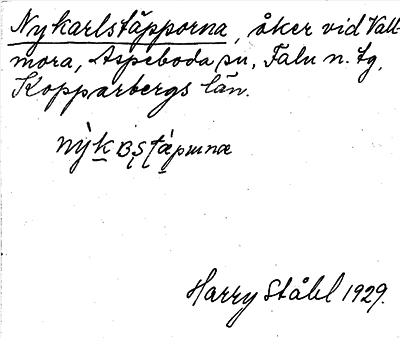 Nykarlstäpporna, åker vid Vall-
mora, Aspeboda sn, Falu n. tg,
Kopparbergs län.
Harry Ståhl 1929.